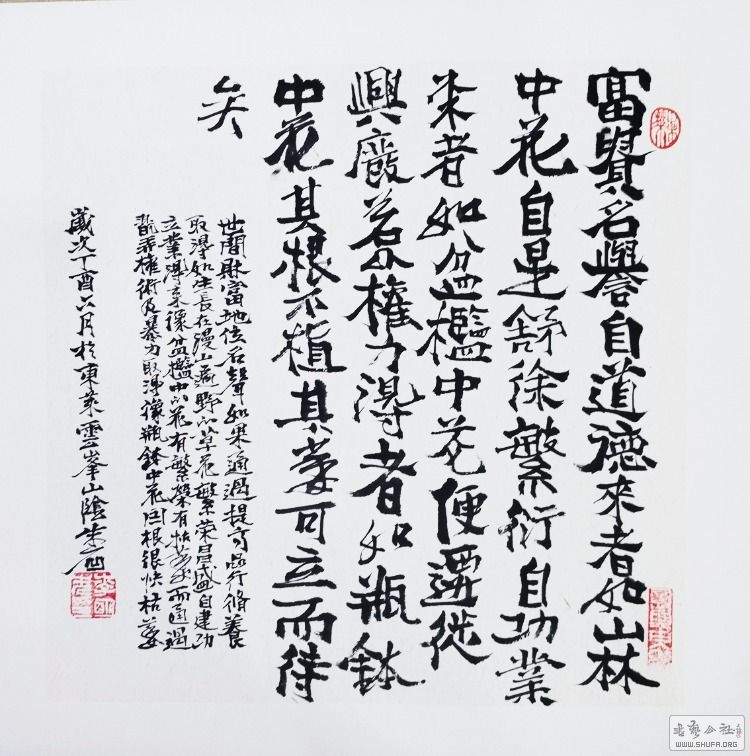 富貴名譽自道德來者如山林
中花自是舒徐繁衍自功業
來者如盆檻中花便遷徙
興廢若以權力得者如瓶鉢
中花其根不植其萎可立而待
矣
世間財富地位名聲如果通過提高品行脩養
取得如生長在漫山遍野的草花繁荣昌盛自建功
立業得来像盆檻中的花有繁榮有枯萎而通過
權術及暴力取得像瓶鉢中花因根很快枯萎
歲次丁酉六月於東萊雲峯山陰
WWW.SHUFA.ORG